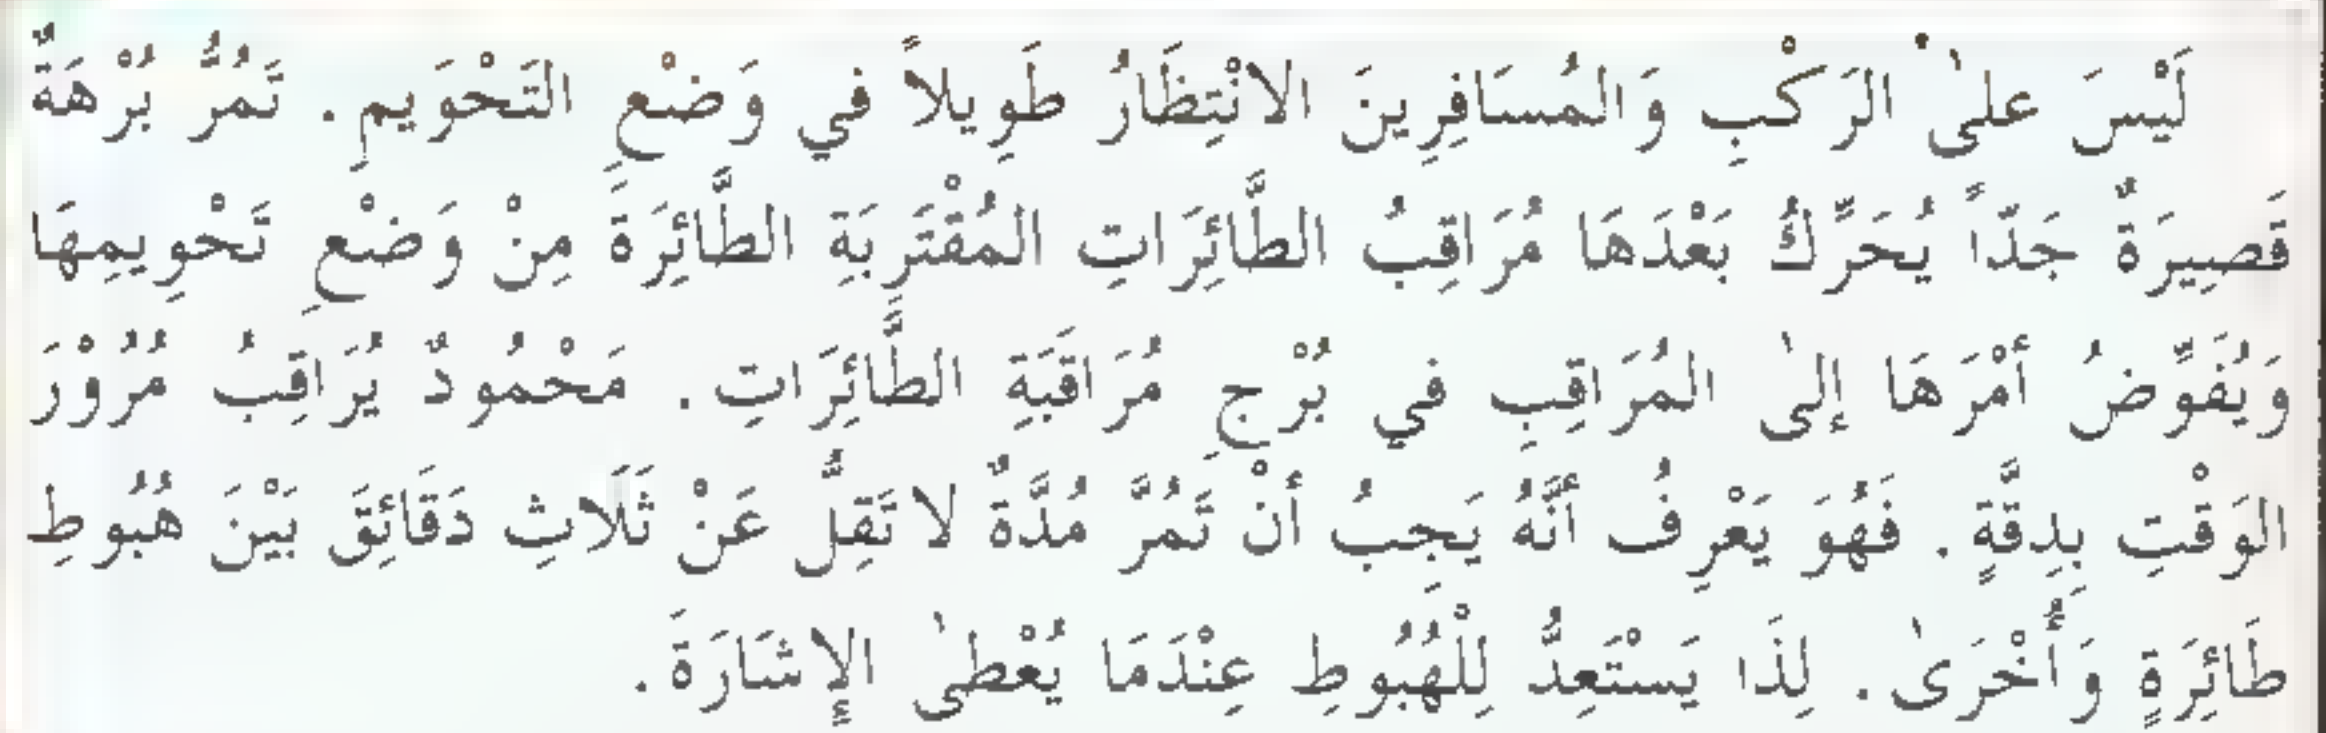 لَيْسَ علىٰ الرَكْبِ وَالمُسَافِرِينَ الانْتِظَارُ طَوِيلاً في وَضْعِ التَحْوَيمِ. تَمُرُّ بُرْهَةٌ
قَصِيرَةٌ جَدّاً يُحَرِّكُ بَعْدَهَا مُرَاقِبُ الطَّائِرَاتِ المُقْتَرِبَةِ الطَّائِرَةَ مِنْ وَضْعِ تَحْوِيمِهَا
وَيُفَوِّضُ أمْرَهَا إلىٰ المُرَاقِبِ في بُرْجِ مُرَاقَبَةِ الطَّائِرَاتِ. مَحْمُودٌ يُرَاقِبُ مُرُوْرَ
الوَقْتِ بِدِقَّةٍ. فَهُوَ يَعْرِفُ أنَّهُ يَجِبُ أنْ تَمُرَّ مُدَّةٌ لا تَقِلُّ عَنْ ثَلَاثِ دَقَائِقَ بَيْنَ هُبُوطِ
طَائِرَةٍ وَأُخْرَىٰ. لِذَا يَسْتَعِدُّ لِلْهُبُوطِ عِنْدَمَا يُعْطىٰ الإِشَارَةَ.